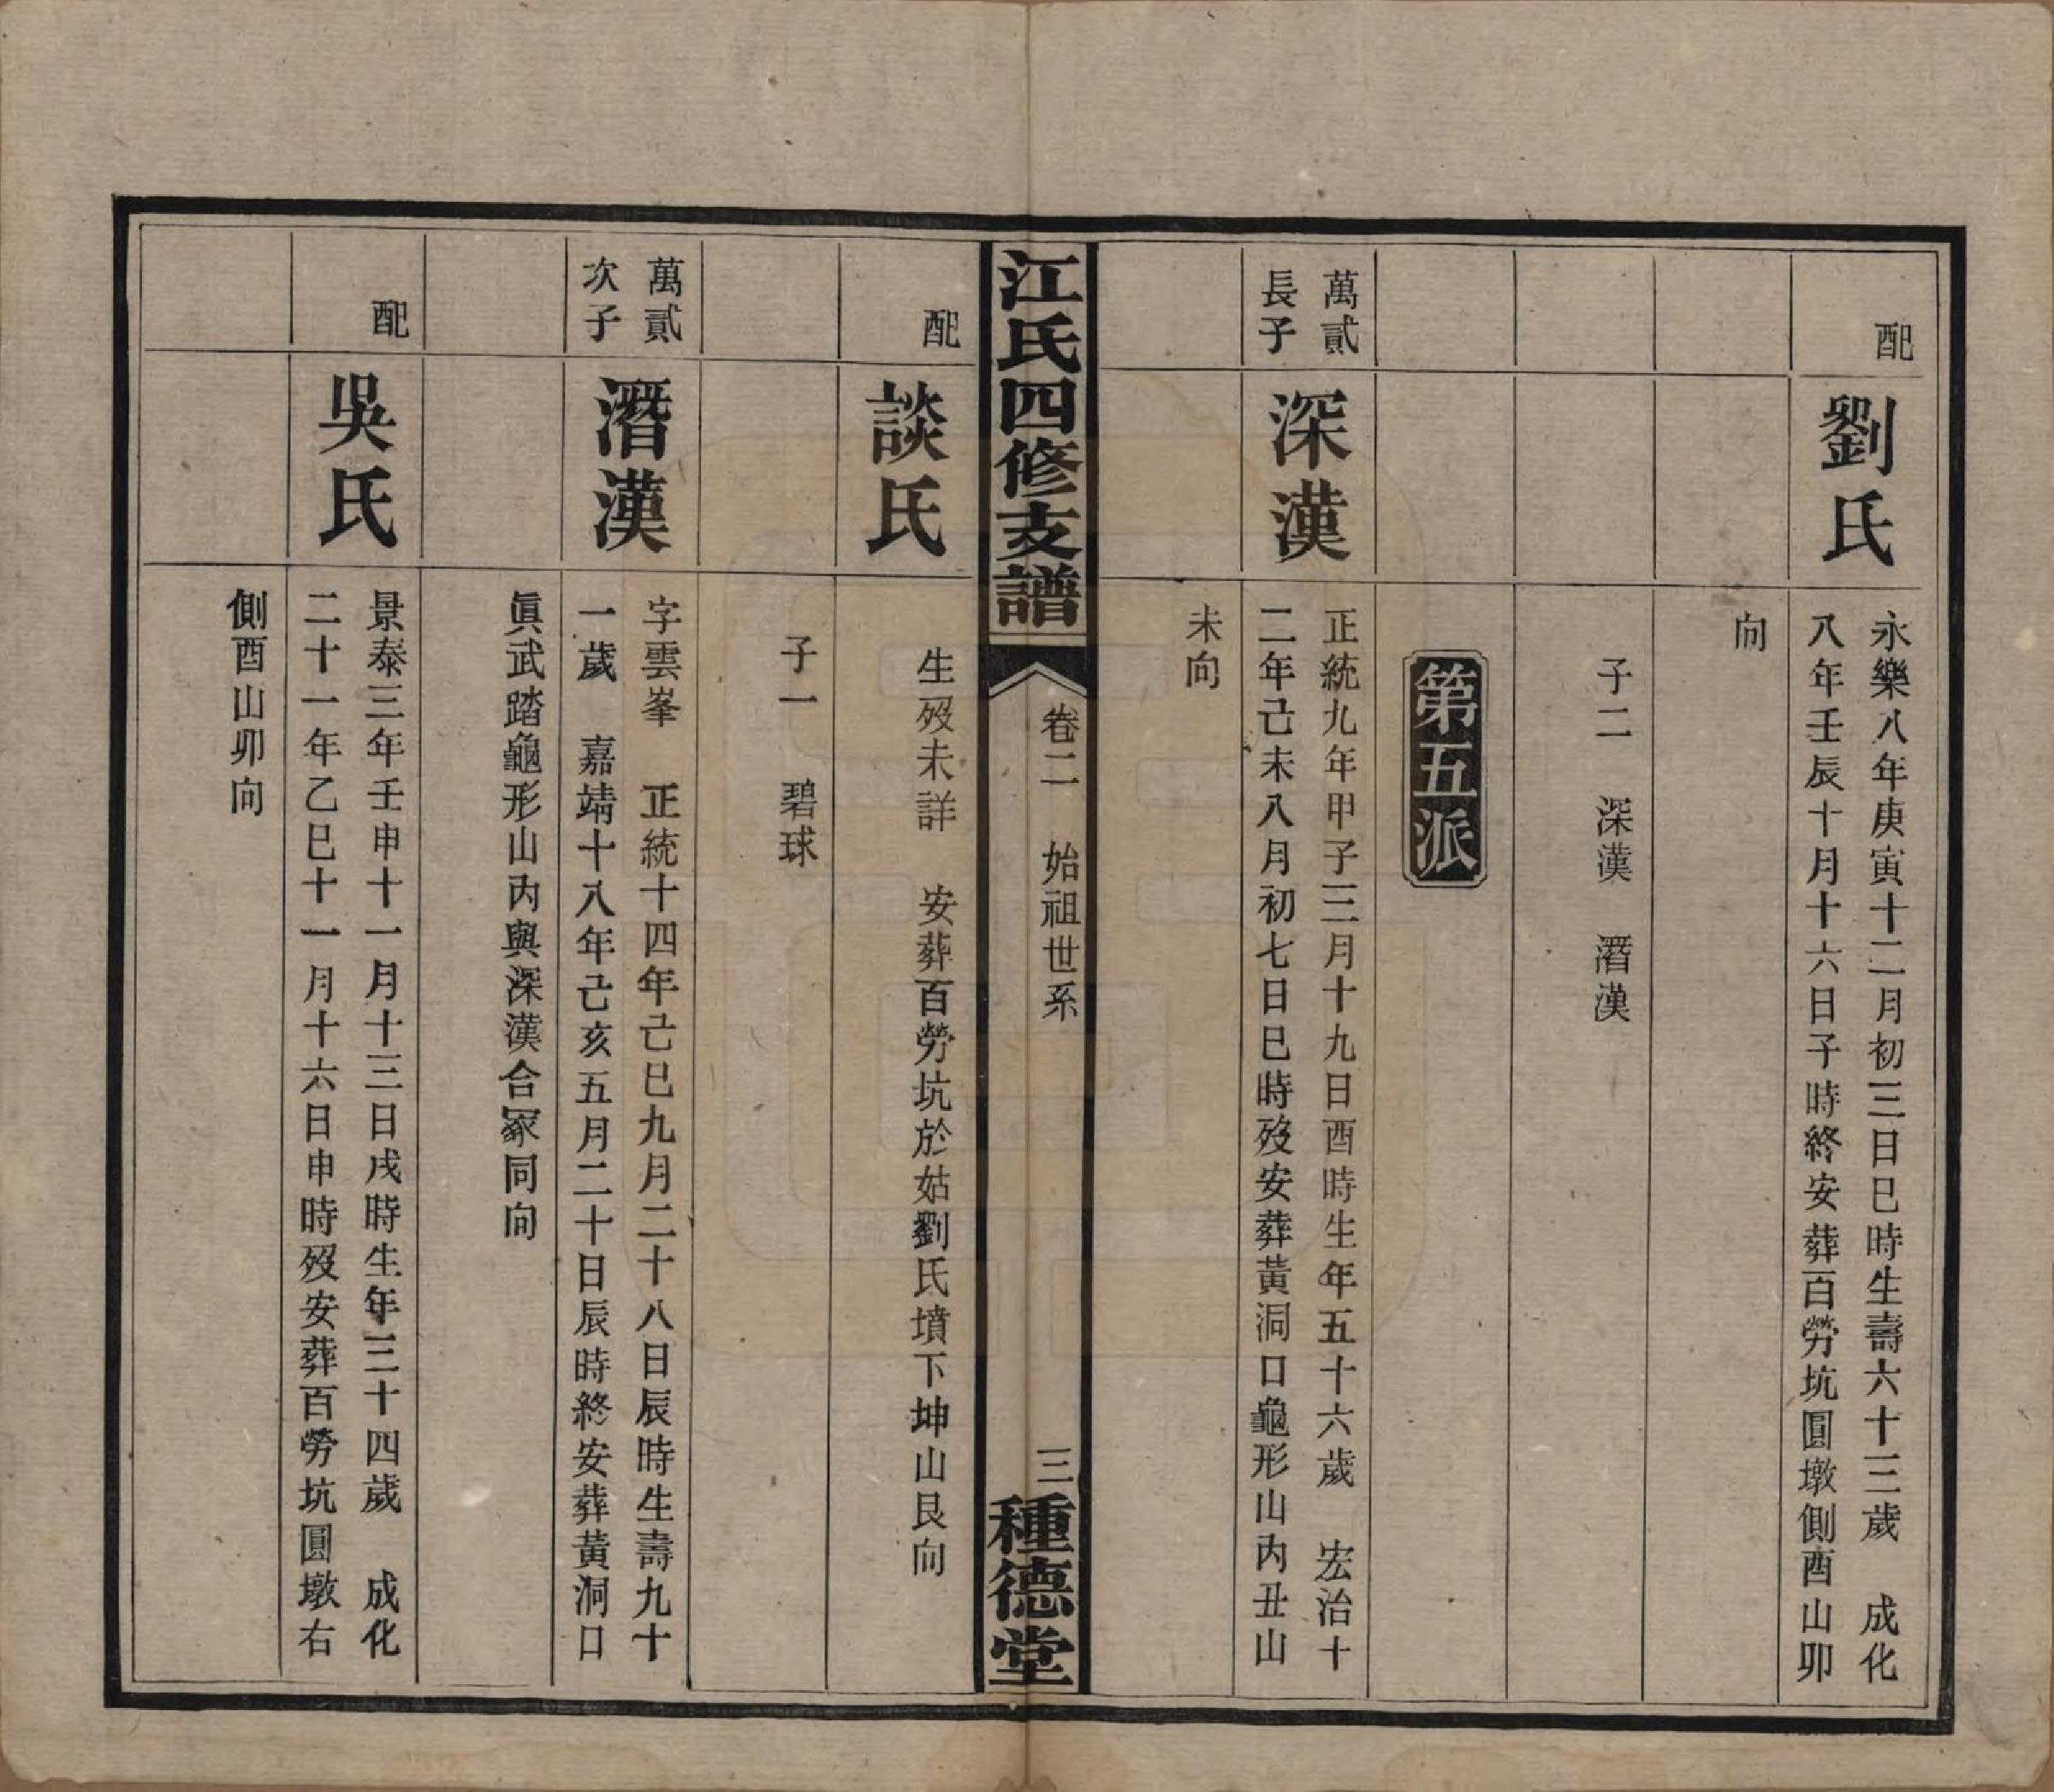 配
劉氏
永樂八年庚寅十二月初三日巳時生壽六十三歲　成化
八年壬辰十月十六日子時終安葬百勞坑圓墩側酉山卯
向
子二　深漢　潛漢
第五派
萬貳
長子
深漢
正統九年甲子三月十九日酉時生年五十六歲　宏治十
二年己未八月初七日巳時歿安葬黃洞口龜形山內丑山
未向
江氏四修支譜
卷二　始祖世系
三
種德堂
配
談氏
生歿未詳　安葬百勞坑於姑劉氏墳下坤山艮向
子一　碧球
萬貳
次子
潛漢
字雲峯　正統十四年己巳九月二十八日辰時生壽九十
一歲　嘉靖十八年己亥五月二十日辰時終安葬黃洞口
眞武踏龜形山內與深漢合冢同向
配
吳氏
景泰三年壬申十一月十三日戌時生年三十四歲　成化
二十一年乙巳十一月十六日申時歿安葬百勞坑圓墩右
側酉山卯向